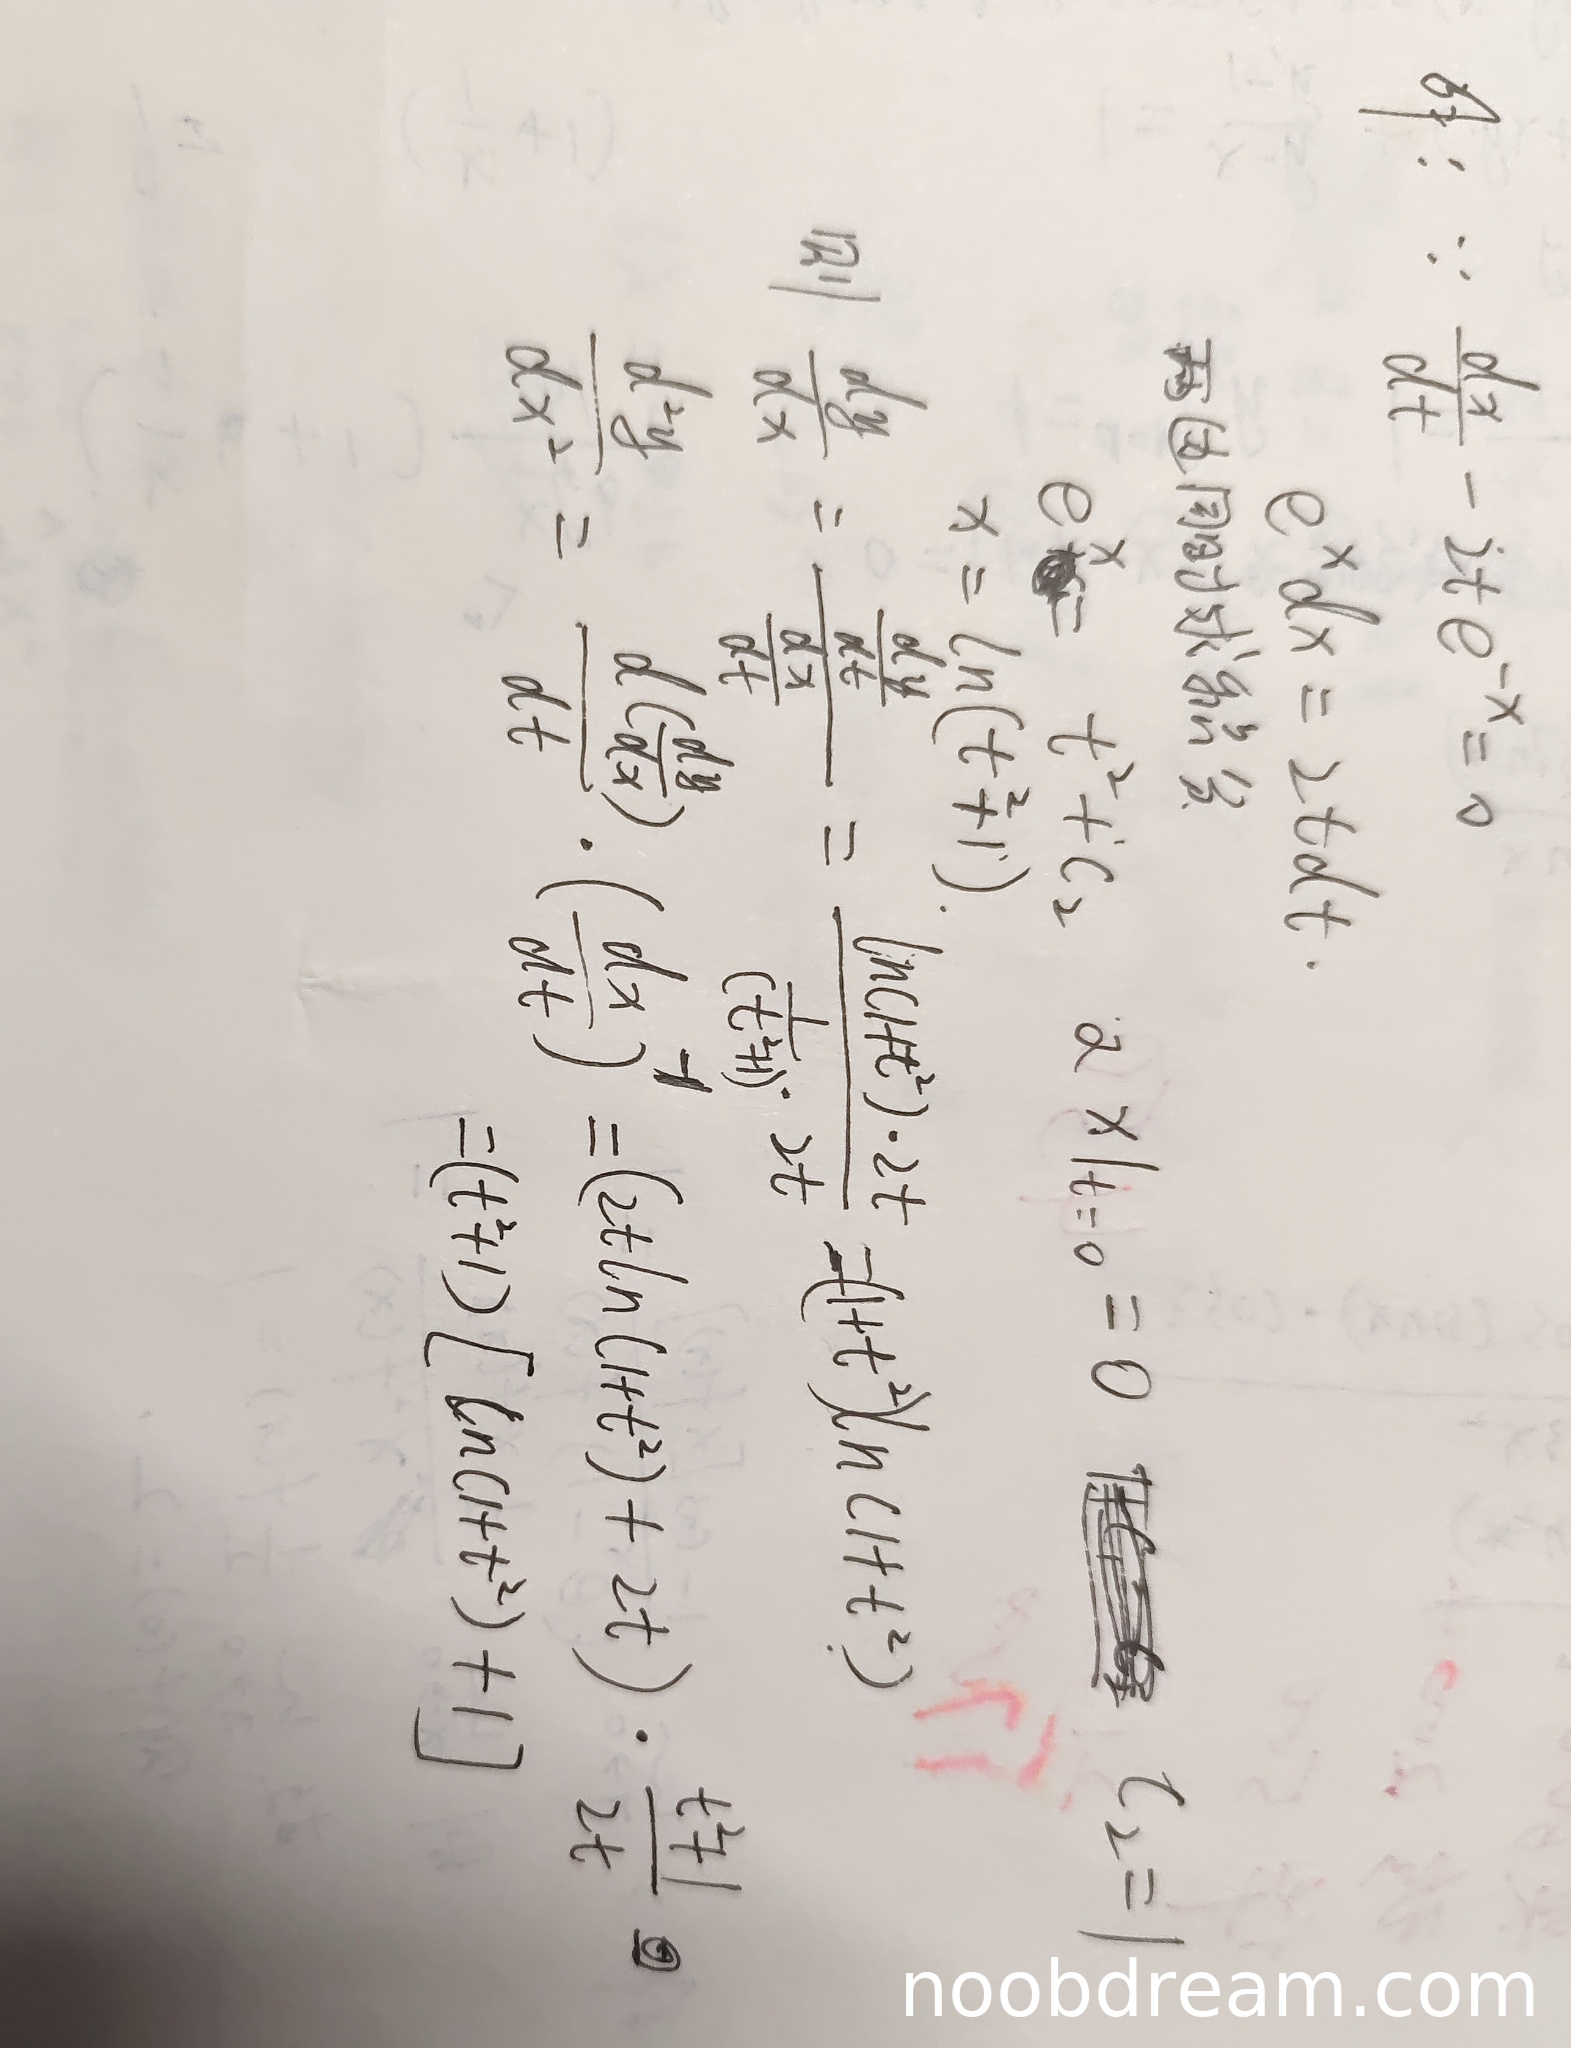 解: ∵ dx/dt - 2te^{-x} = 0
e^x dx = 2tdt.
两边同时求积分
e^x = t²+C₂ 又 x|t=0 = 0 C₂=1
x = ln(t²+1).
则 dy/dx = (dy/dt)/(dx/dt) = (ln(1+t²)·2t)/(1/(t²+1)·2t) = (1+t²)ln(1+t²)
d²y/dx² = d(dy/dx)/dt · (dx/dt)^{-1} = (2tln(1+t²)+2t) · (t²+1)/2t
= (t²+1)[ln(1+t²)+1]
noobdream.com